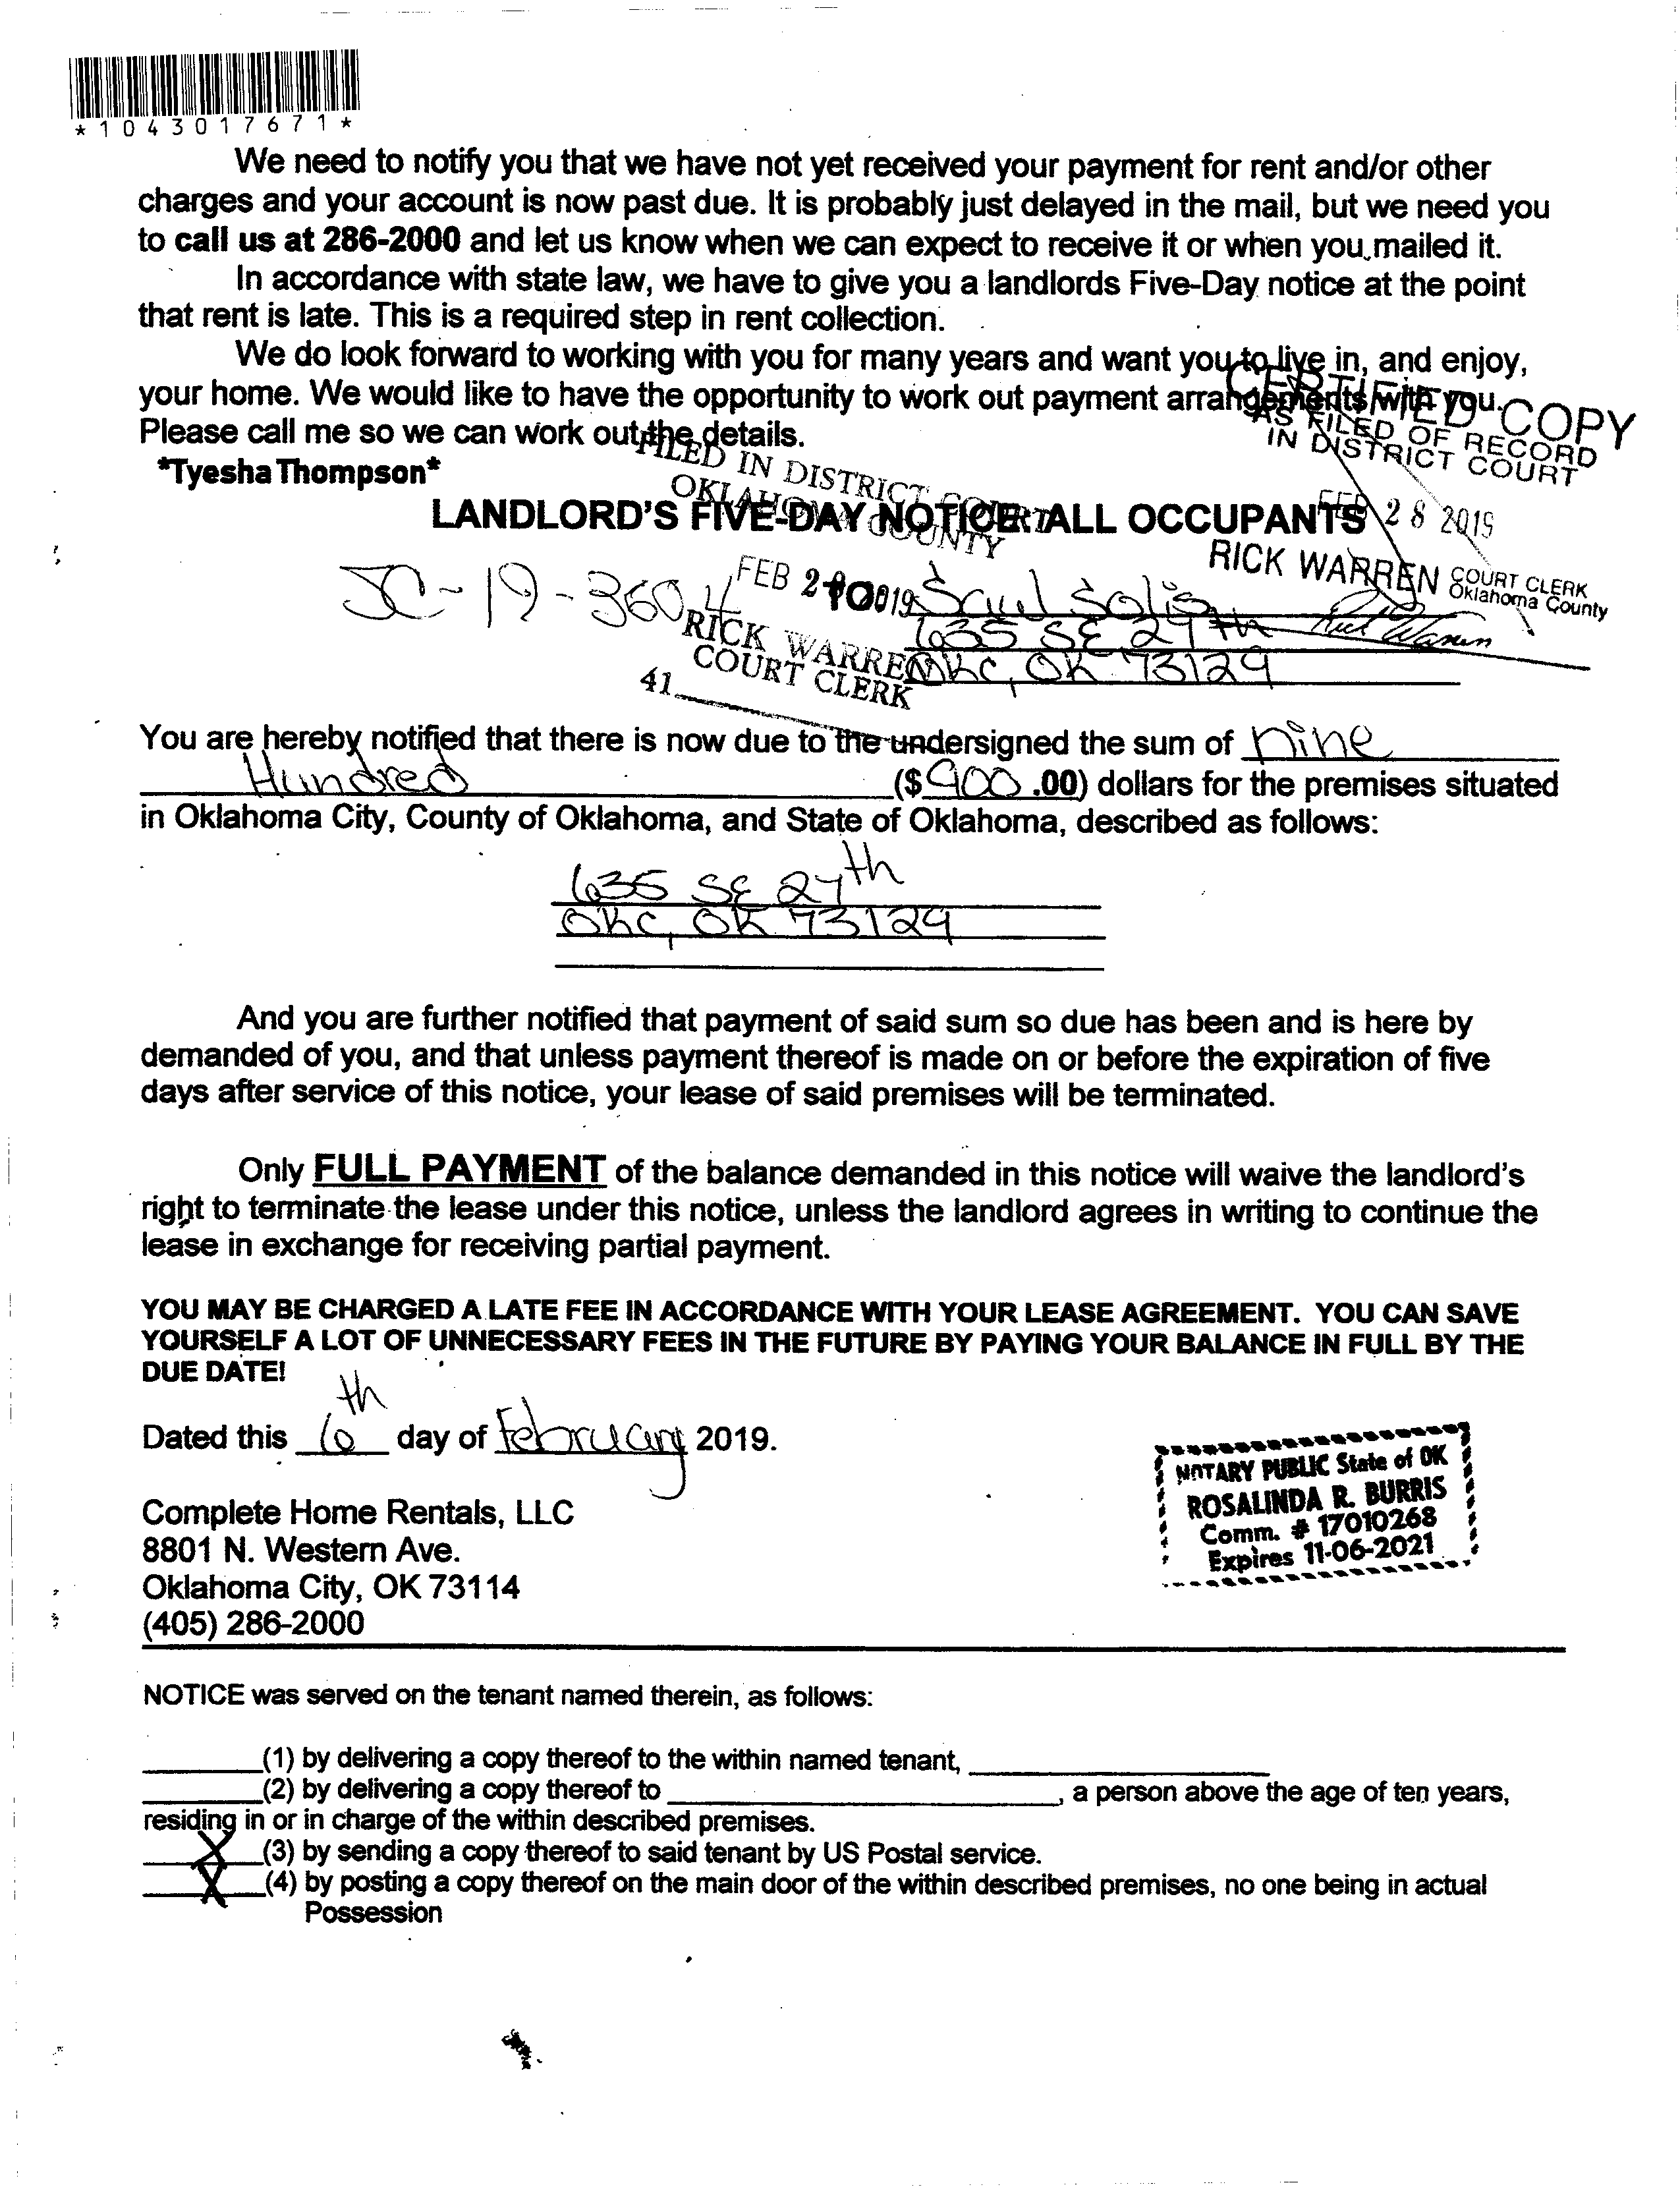 *1043017671*
We need to notify you that we have not yet received your payment for rent and/or other
charges and your account is now past due. It is probably just delayed in the mail, but we need you
to call us at 286-2000 and let us know when we can expect to receive it or when you mailed it.
In accordance with state law, we have to give you a landlords Five-Day notice at the point
that rent is late. This is a required step in rent collection.
We do look forward to working with you for many years and want you to live in, and enjoy,
your home. We would like to have the opportunity to work out payment arrangements with you.
Please call me so we can work out the details.
*Tyesha Thompson*
CERTIFIED COPY
AS FILED OF RECORD
IN DISTRICT COURT
FEB 28 2019
RICK WARREN COURT CLERK
Oklahoma County
Rick Warren
FILED IN DISTRICT COURT
OKLAHOMA COUNTY
FEB 28 2019
RICK WARREN
COURT CLERK
41
LANDLORD'S FIVE-DAY NOTICE: ALL OCCUPANTS
SC-19-3604
TO: Saul Solis
635 SE 27th
OKC, OK 73129
You are hereby notified that there is now due to the undersigned the sum of nine
Hundred ($900.00) dollars for the premises situated
in Oklahoma City, County of Oklahoma, and State of Oklahoma, described as follows:
635 SE 27th
OKC, OK 73129
And you are further notified that payment of said sum so due has been and is here by
demanded of you, and that unless payment thereof is made on or before the expiration of five
days after service of this notice, your lease of said premises will be terminated.
Only FULL PAYMENT of the balance demanded in this notice will waive the landlord's
right to terminate the lease under this notice, unless the landlord agrees in writing to continue the
lease in exchange for receiving partial payment.
YOU MAY BE CHARGED A LATE FEE IN ACCORDANCE WITH YOUR LEASE AGREEMENT. YOU CAN SAVE
YOURSELF A LOT OF UNNECESSARY FEES IN THE FUTURE BY PAYING YOUR BALANCE IN FULL BY THE
DUE DATE!
Dated this 6th day of February 2019.
NOTARY PUBLIC State of OK
ROSALINDA R. BURRIS
Comm. # 17010268
Expires 11-06-2021
Complete Home Rentals, LLC
8801 N. Western Ave.
Oklahoma City, OK 73114
(405) 286-2000
NOTICE was served on the tenant named therein, as follows:
(1) by delivering a copy thereof to the within named tenant,
(2) by delivering a copy thereof to , a person above the age of ten years,
residing in or in charge of the within described premises.
X (3) by sending a copy thereof to said tenant by US Postal service.
X (4) by posting a copy thereof on the main door of the within described premises, no one being in actual
Possession